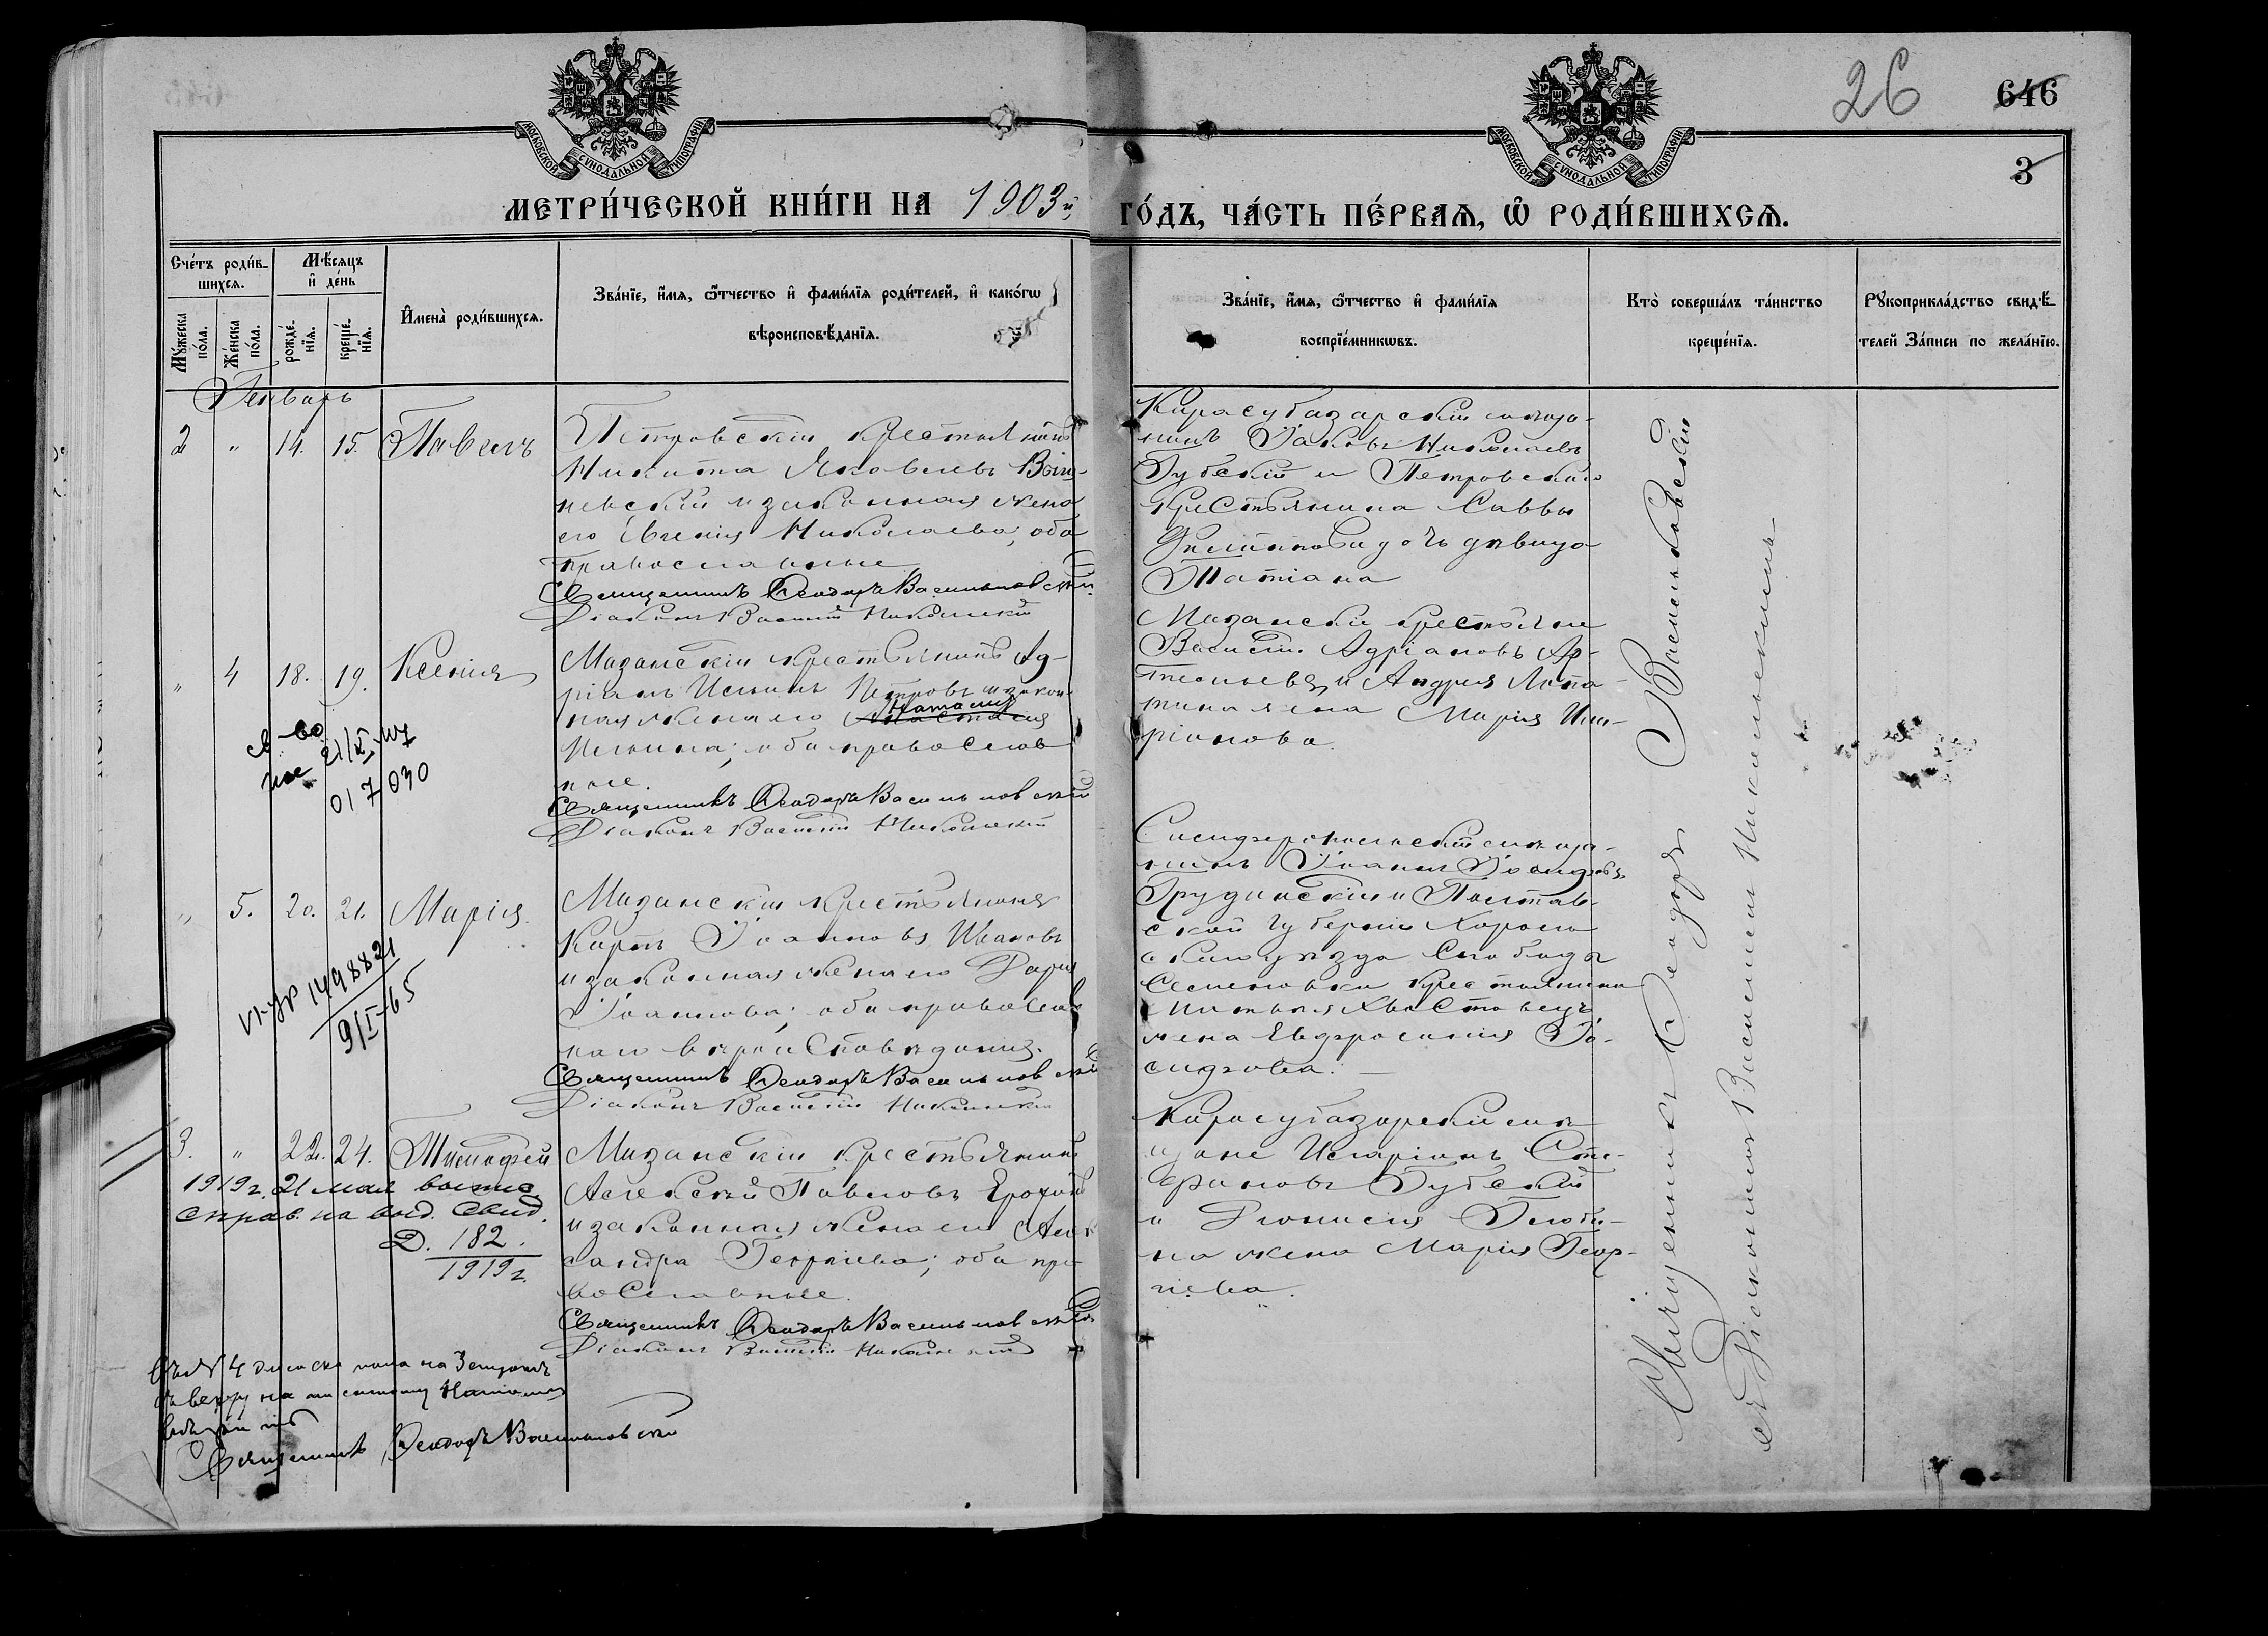 26
646
3
МОСКОВСКОЙ СѴНОДАЛЬНОЙ ТИПОГРАФІИ
МОСКОВСКОЙ СѴНОДАЛЬНОЙ ТИПОГРАФІИ
МЕТРИ́ЧЕСКОЙ КНИ́ГИ НА 1903й
ГО́ДЪ, ЧА́СТЬ ПЕ́РВАѦ, Ѡ҆ РОДИ́ВШИХСѦ.
Сче́тъ роди́в-
шихсѧ.
Мꙋ́жеска по́ла.
Же́нска по́ла.
Мѣ́сѧцъ
и҆ де́нь
рожде́-
нїѧ.
креще́-
нїѧ.
И҆мена̀ роди́вшихсѧ.
Зва́нїе, и҆́мѧ, ѻ҆́тчество и҆ фами́лїѧ роди́телей, и҆ како́гѡ
вѣроисповѣ́данїѧ.
Зва́нїе, и҆́мѧ, ѻ҆́тчество и҆ фами́лїѧ
воспрїе́мникѡвъ.
Кто̀ соверша́лъ та́инство
креще́нїѧ.
Рꙋкоприкла́дство свидѣ́-
телей За́писи по жела́нїю.
Генварь
2 " 14. 15. Павелъ
Петровскій крестьянинъ
Никита Яковлевъ
невскій и законная жена
его Евгенія Николаева; оба
православные
Священникъ Ѳеодоръ Васильковскій
Діаконъ Василій Никольскій
Карасубазарскій мѣща-
нинъ Іаковъ Николаевъ
Губскій и Петровскаго
крестьянина Саввы
дочь дѣвица
Татіана
" 4 18. 19. Ксенія
Мазанскій крестьянинъ Ад-
ріанъ Ильинъ Петровъ и закон-
ная жена его Наталія
Ильина; оба православ-
ные.
Священникъ Ѳеодоръ Васильковскій
Діаконъ Василій Никольскій
Мазанскіе крестьяне
Василій Адріановъ Ар-
темьевъ и Андрея Лопа-
тина жена Марія Ила-
ріонова.
017030
" 5. 20. 21. Марія
Мазанскій крестьянинъ
Карпъ Іоанновъ Ивановъ
и законная жена его Дарія
Іоаннова; оба православ-
наго вѣроисповѣданія.
Священникъ Ѳеодоръ Васильковскій
Діаконъ Василій Никольскій
Симферопольскій мѣща-
нинъ Іоаннъ Іосифовъ
Грудинскій и Полтав-
ской губерніи Хороль-
скаго уѣзда Слободы
Семеновки крестьянина
жена Евфросинія Іо-
сифова.
1498821
9/I-65
3. " 22. 24. Тимофей
Мазанскій крестьянинъ
Алексій Павловъ Ерохинъ
и законная жена его Алек-
сандра Георгіева; оба пра-
вославные.
Священникъ Ѳеодоръ Васильковскій
Діаконъ Василій Никольскій
Карасубазарскіе мѣ-
щане Иларіонъ Сте-
фановъ Губскій
и Діонисія
на жена Марія Геор-
гіева.
1919г. 21 мая
справ. на выд. свид.
Д. 182.
1919г.
Священникъ Ѳеодоръ Васильковскій
Священникъ Ѳеодоръ Васильковскій
съ Діакономъ Василіемъ Никольскимъ